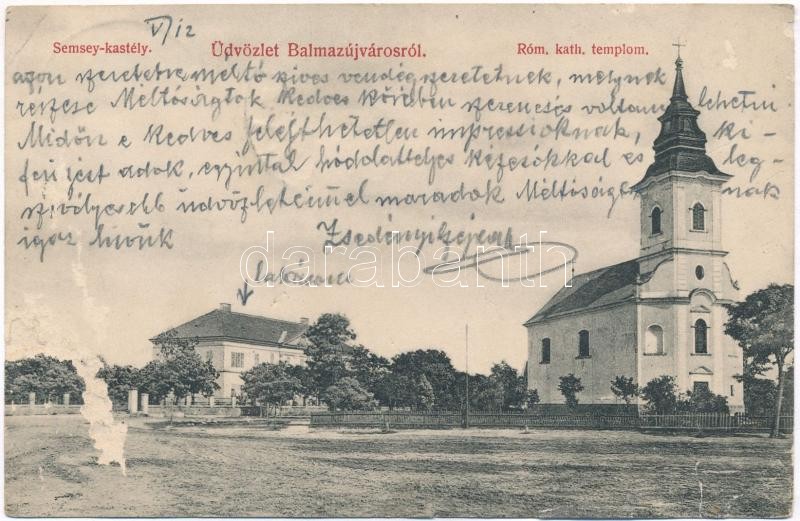 V/12
Semsey-kastély.
Üdvözlet Balmazújvárosról.
Róm. kath. templom.
azon szeretetre méltó szives vendégszeretetnek, melynek
részese Méltóságtok kedves körében szerencsés voltam lehetni
Midőn e kedves felejthetetlen impressioknak, ki-
fejezést adok, egyúttal hódolatteljes kézcsókkal és leg-
szivélyesebb üdvözletemmel maradok Méltóságtoknak
igaz hívük
darabanth